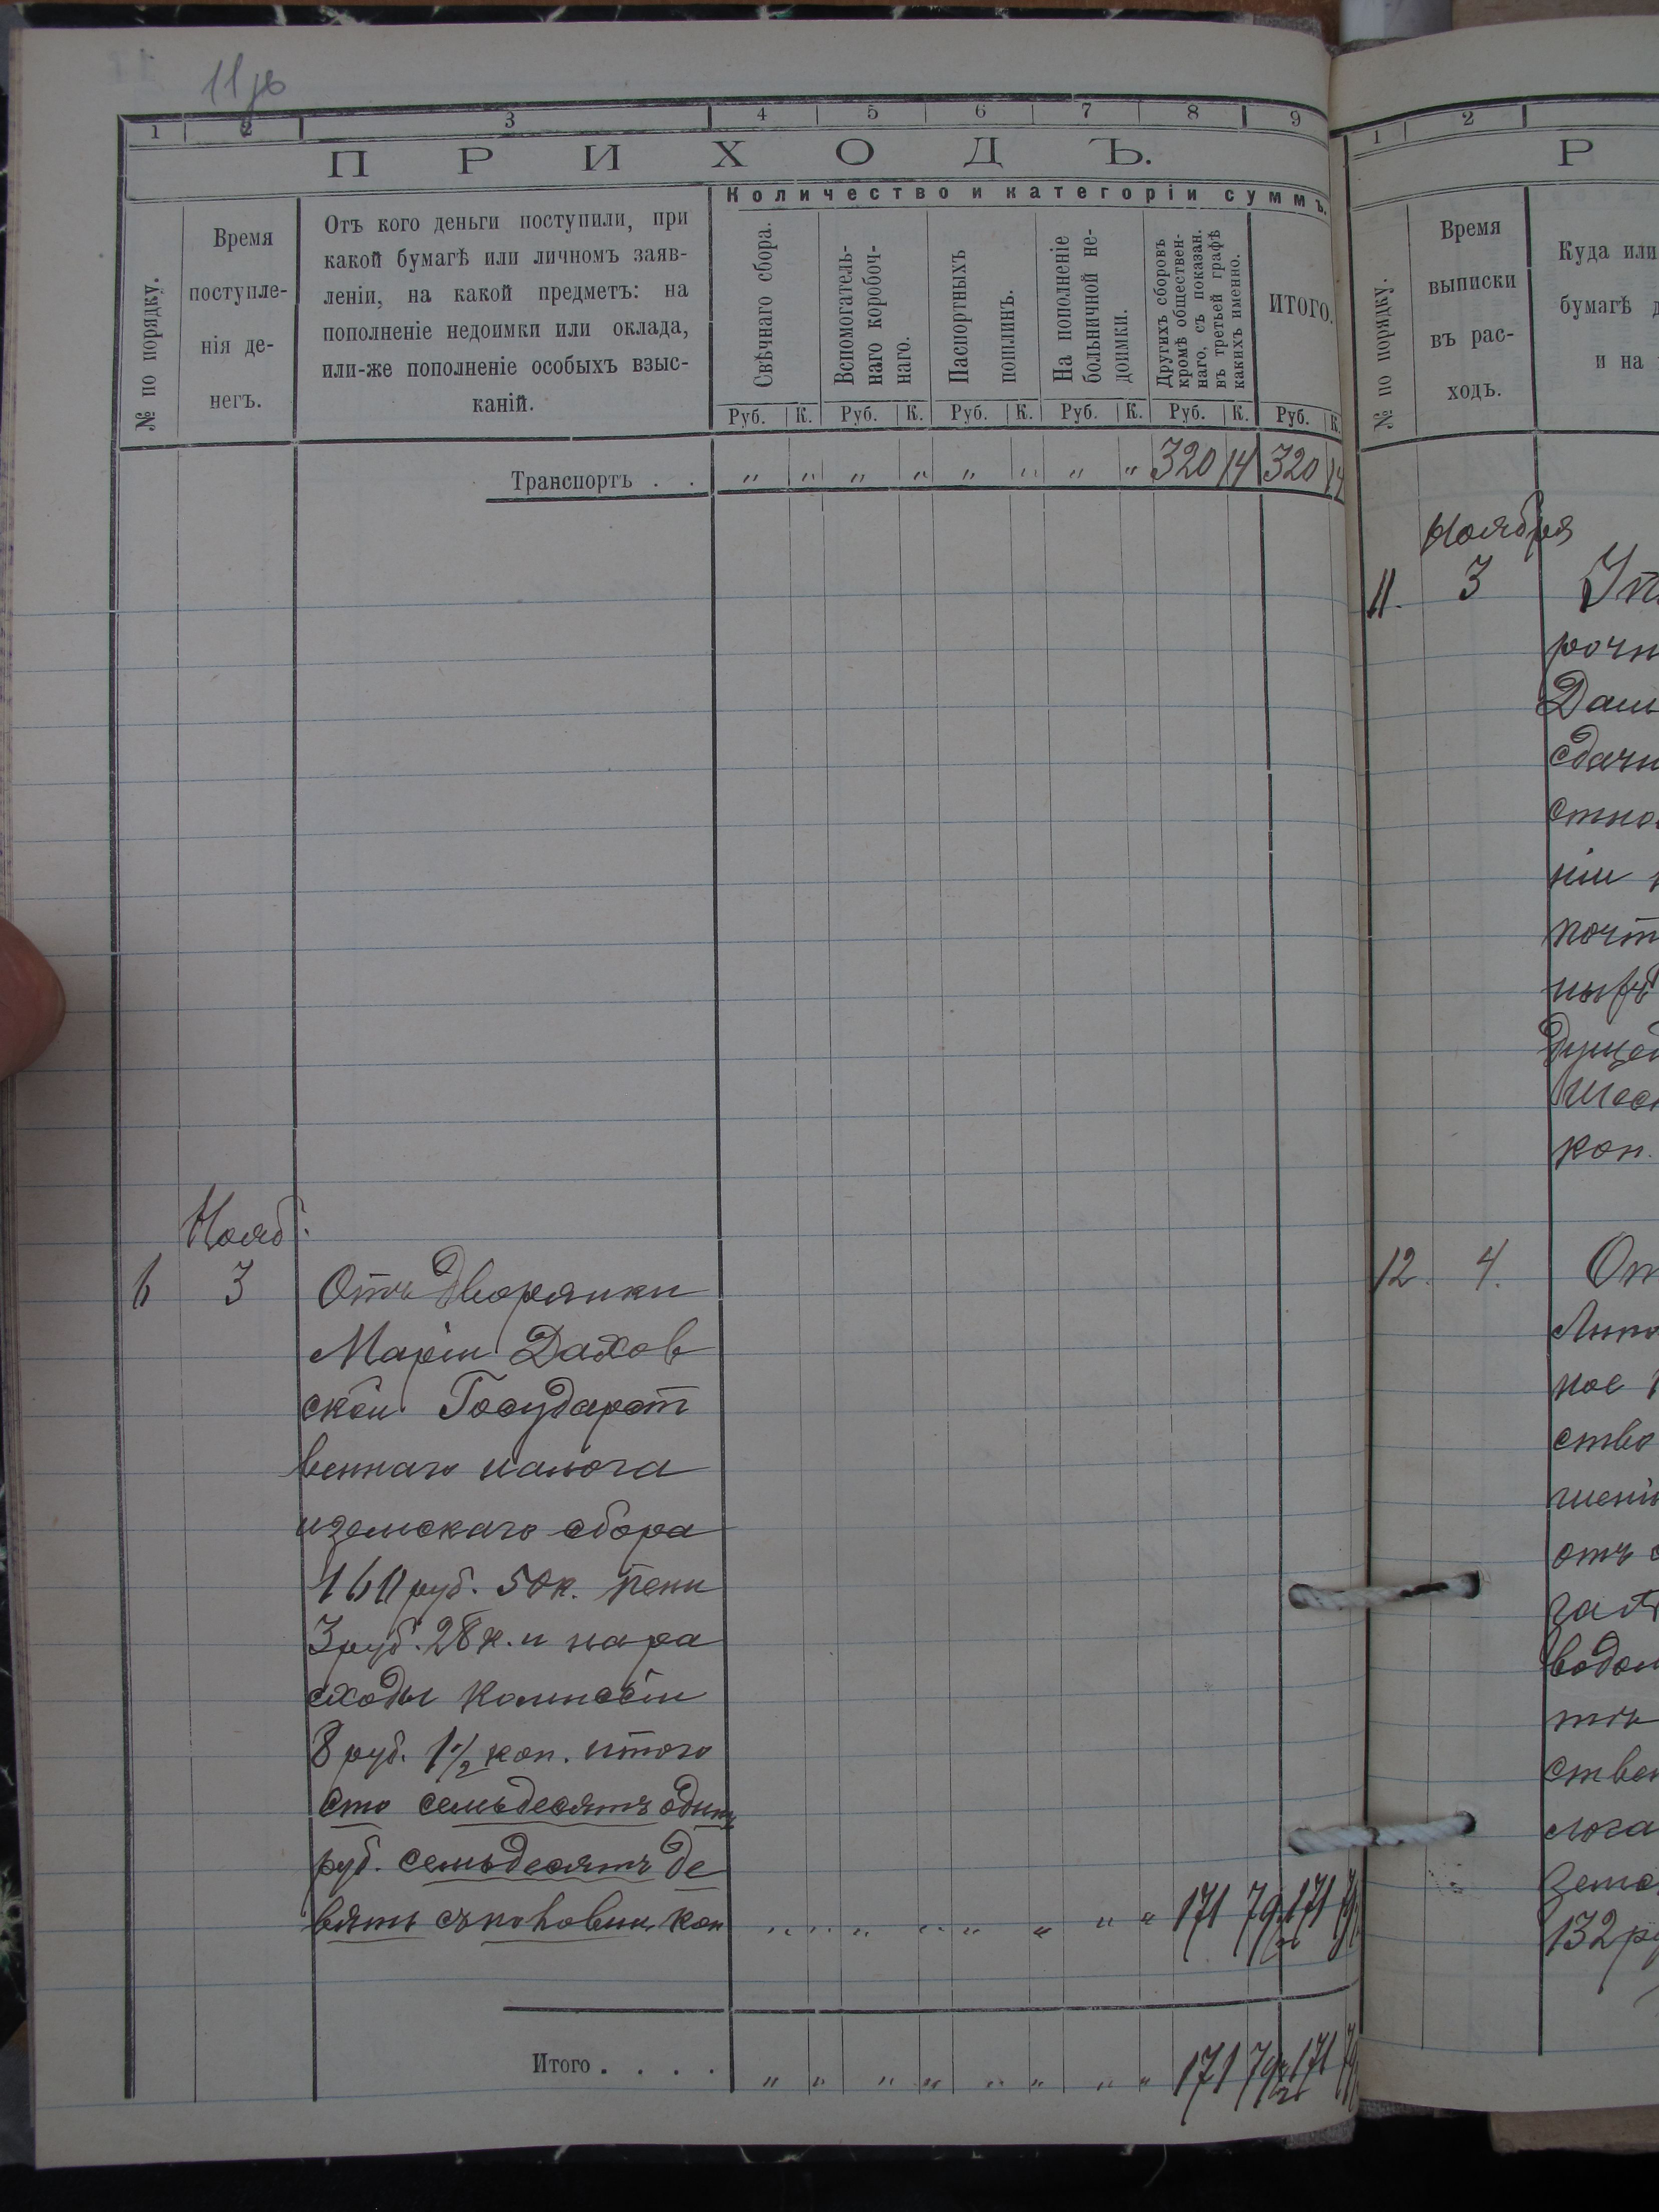 1 2 3 4 5 6 7 8 9
ПРИХОДЪ.
Количество и категоріи суммъ.
№ по порядку.
Время
поступле-
нія де-
негъ.
Отъ кого деньги поступили, при
какой бумагѣ или личномъ заяв-
леніи, на какой предметъ: на
пополненіе недоимки или оклада,
или-же пополненіе особыхъ взыс-
каній.
Свѣчнаго сбора.
Вспомогатель-
наго коробоч-
наго.
Паспортныхъ
пошлинъ.
На пополненіе
больничной не-
доимки.
Другихъ сборовъ
кромѣ обществен-
наго, съ показан.
въ третьей графѣ
какихъ именно.
ИТОГО.
Руб. К. Руб. К. Руб. К. Руб. К. Руб. К. Руб. К.
Транспортъ . . „ „ „ „ „ „ „ „ 320 14 320 14
Нояб.
6 3 Отъ Дворянки
Маріи Дахов
ской Государст
веннаго налога
и земскаго сбора
160 руб. 50 к. пени
3 руб. 28 к. и на ра
сходы Коммиссіи
8 руб. 1 1/2 коп. итого
сто семьдесятъ одинъ
руб. семьдесятъ де
вять съ половин. коп „ „ „ „ „ „ „ „ 171 79 1/2 171 79
Итого . . . . „ „ „ „ „ „ „ „ 171 79 1/2 171 79
1 2
Р
№ по порядку.
Время
выписки
въ рас-
ходъ.
Куда или
бумагѣ
и на
Ноября
11. 3
рочн
сдачи
отно
ніи
почт
душев
коп.
12. 4. От
ное
ство
отъ
водом
ствен
лога
земс
132 ру